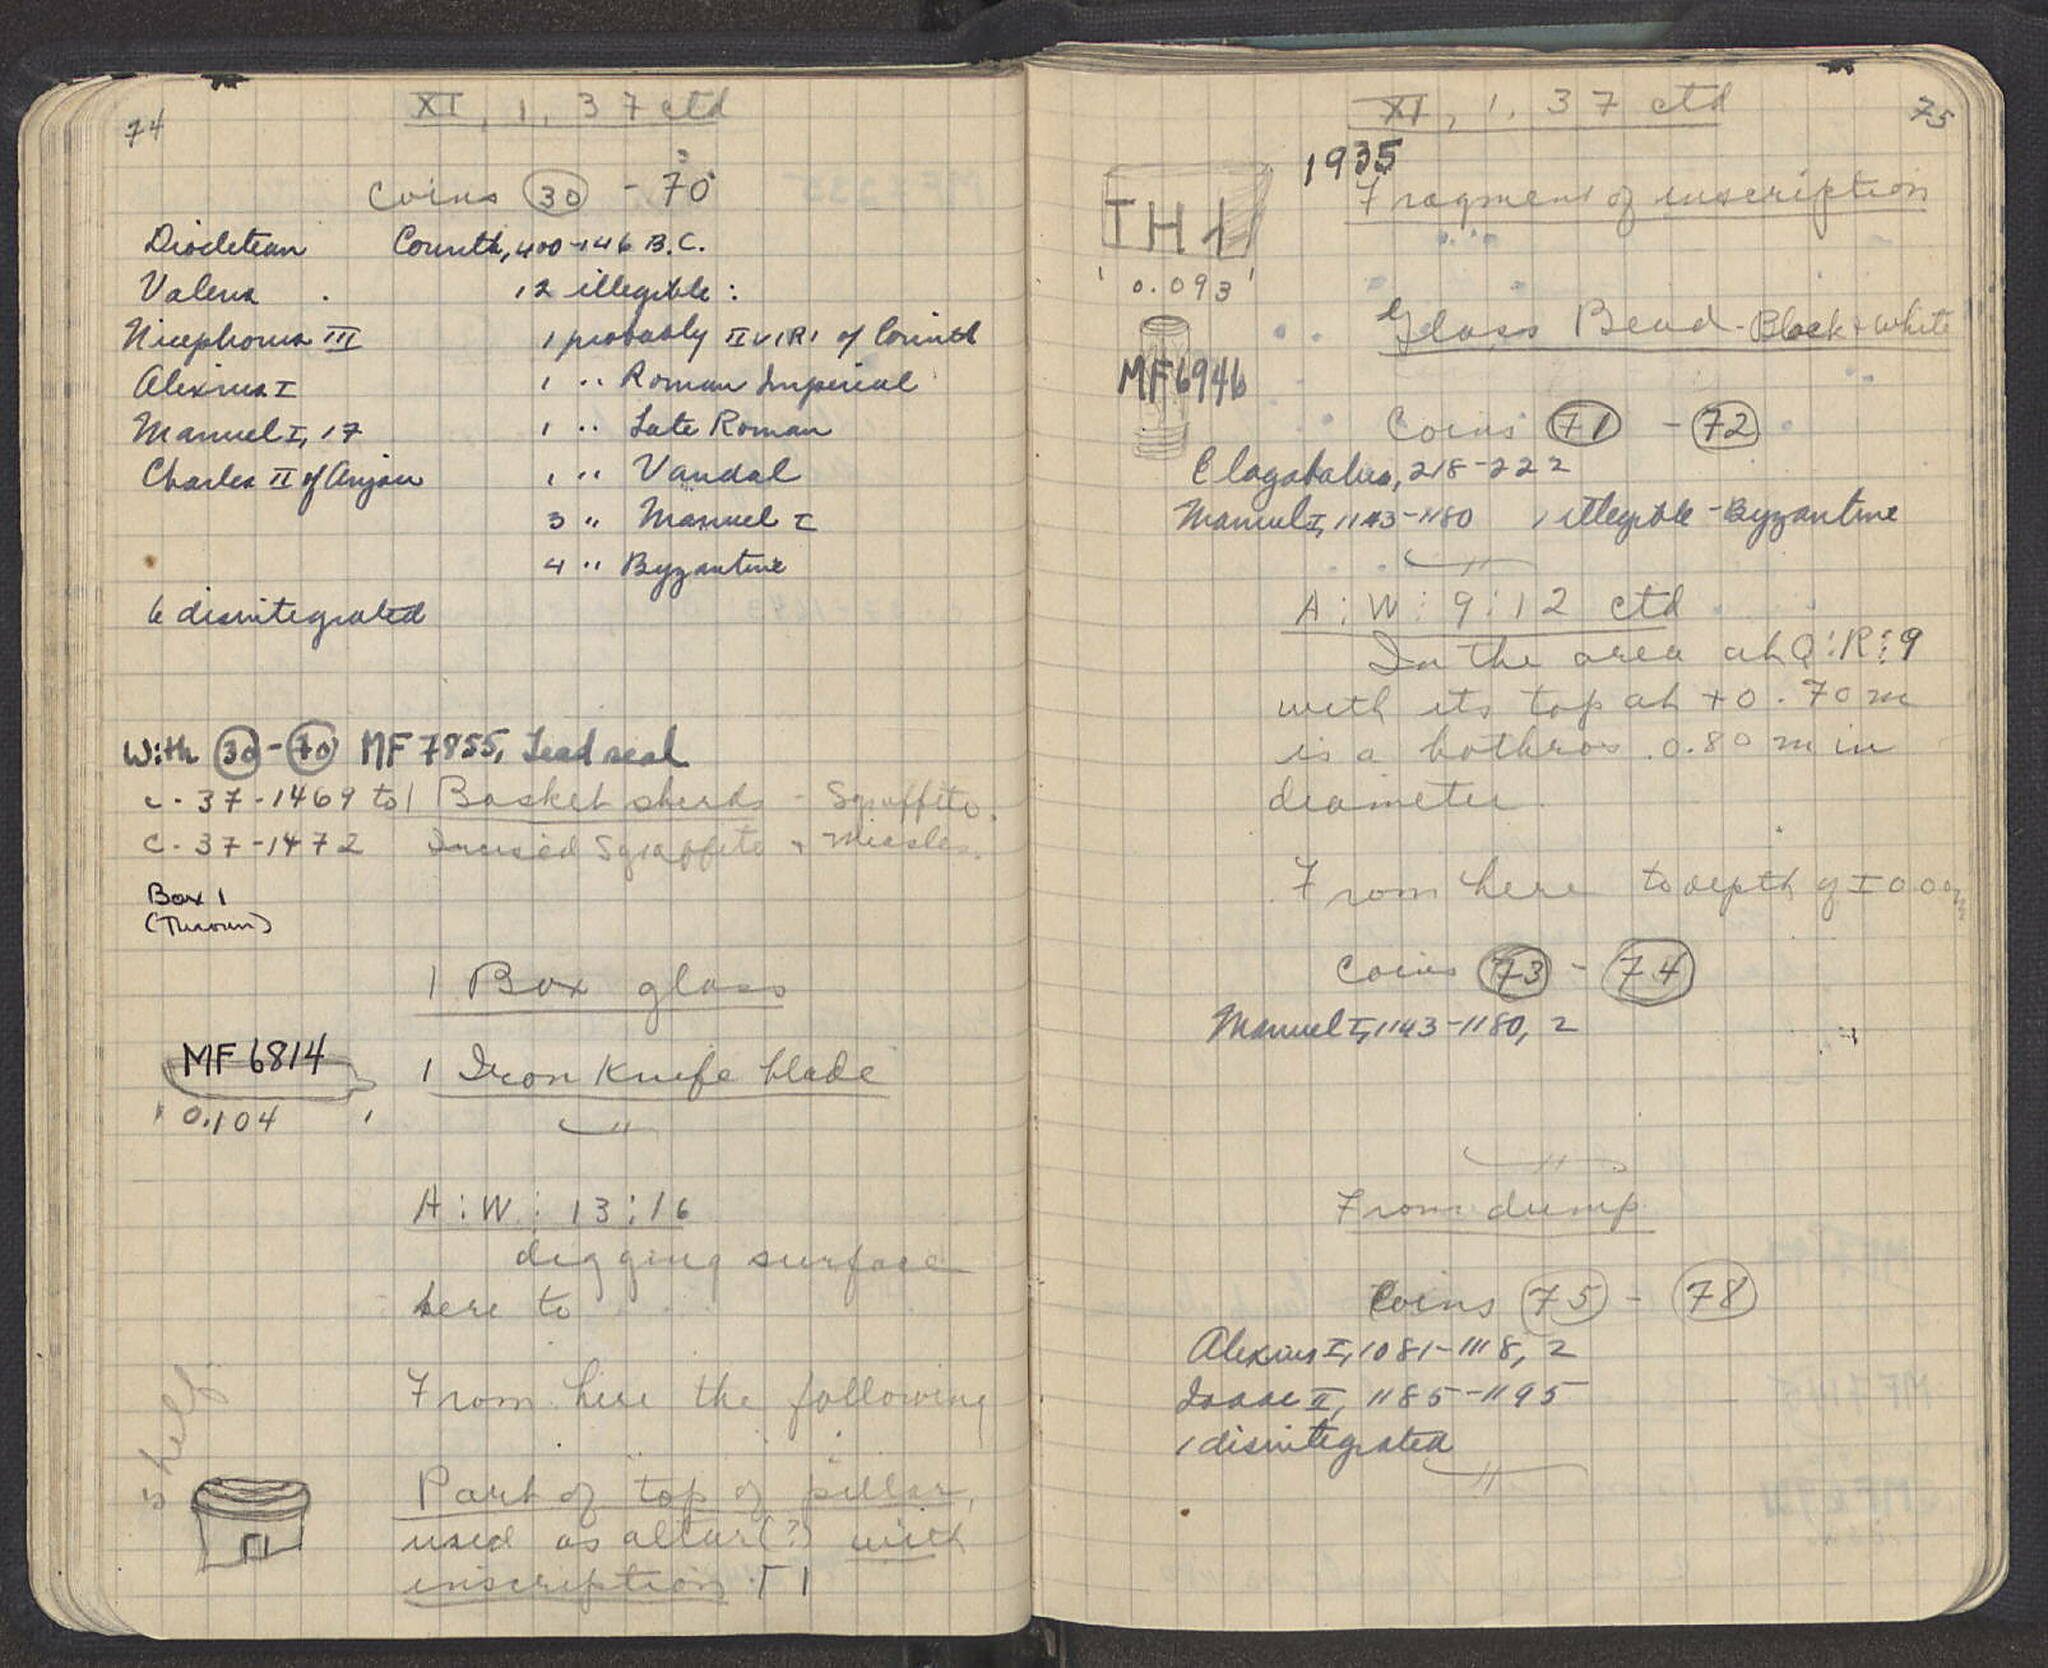 74
XI, 1, 37 ctd
Coins 30 - 70
Diocletian Corinth, 400-146 B.C.
Valens 12 illegible:
Nicephorus III 1 probably IIVIRI of Corinth
Alexius I 1 " Roman Imperial
Manuel I, 17 1 " Late Roman
Charles II of Anjou 1 " Vandal
3 " Manuel I
4 " Byzantine
6 disintegrated
With 30 - 70 MF 7855, Lead seal
c. 37-1469 to 1 Basket sherds - Sgraffito,
C. 37-1472 Incised Sgraffito + Miscl.
Box 1
(Thrown)
1 Box glass
MF 6814
1 Iron Knife blade
0.104
A:W: 13:16
digging surface
here to
From here the following
shelf
Part of top of pillar,
used as altar(?) with
inscription Γ Ι
XI, 1, 37 ctd
75
1935
Fragment of inscription
ΤΗΙ
0.093
Glass Bead - Black + White
MF 6946
Coins 71 - 72
Elagabalus, 218-222
Manuel I, 1143-1180 1 illegible - Byzantine
A:W: 9:12 ctd
In the area at Q:R:9
with its top at +0.70 m
is a bothros 0.80 m in
diameter.
From here to depth of ±0.00
Coins 73 - 74
Manuel I, 1143-1180, 2
From dump
Coins 75 - 78
Alexius I, 1081-1118, 2
Isaac II, 1185-1195
1 disintegrated